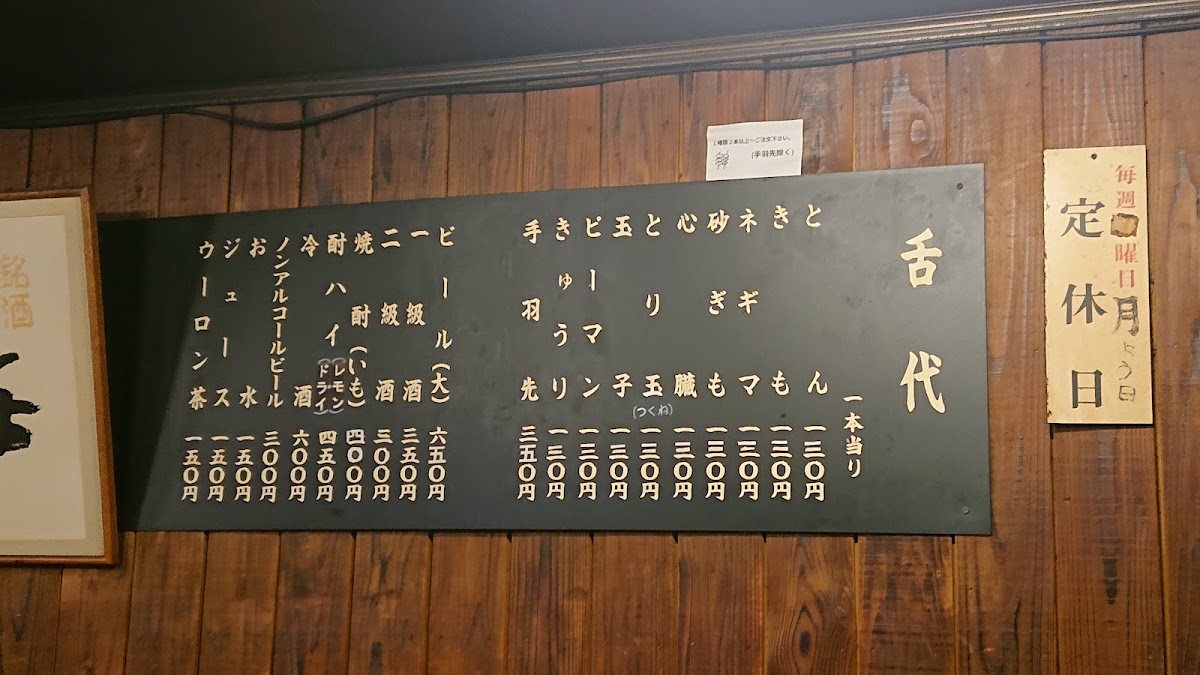 １種類２本以上〜ご注文下さい。
(手羽先除く)
毎週曜日
月よう日
定休日
舌代
一本当り
とん 一三〇円
きも 一三〇円
ネギマ 一三〇円
砂ぎも 一三〇円
心臓 一三〇円
とり玉(つくね) 一三〇円
玉子 一三〇円
ピーマン 一三〇円
きゅうり 一三〇円
手羽先 三五〇円
ビール(大) 六五〇円
一級酒 三五〇円
二級酒 三〇〇円
焼酎(いも) 四〇〇円
酎ハイ(レモン)(ドライ) 四五〇円
冷酒 六〇〇円
ノンアルコールビール 三〇〇円
お水 一五〇円
ジュース 一五〇円
ウーロン茶 一五〇円
銘酒